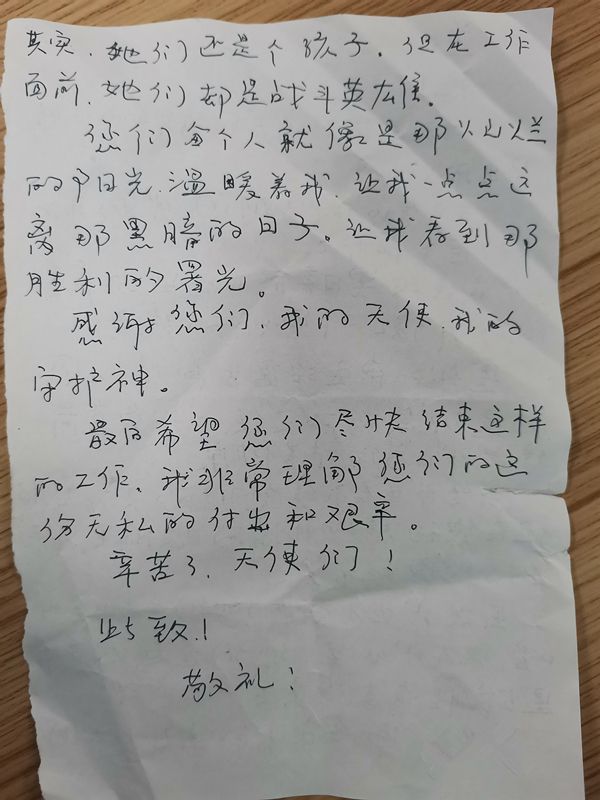 其实，她们还是个孩子。但在工作
面前，她们却是战斗英雄。
您们每个人就像是那灿烂
的阳光，温暖着我，让我一点点远
离那黑暗的日子。让我看到那
胜利的曙光。
感谢您们，我的天使，我的
守护神。
最后希望您们尽快结束这样
的工作，我非常理解您们的这
份无私的付出和艰辛。
辛苦了，天使们！
此致！
敬礼！